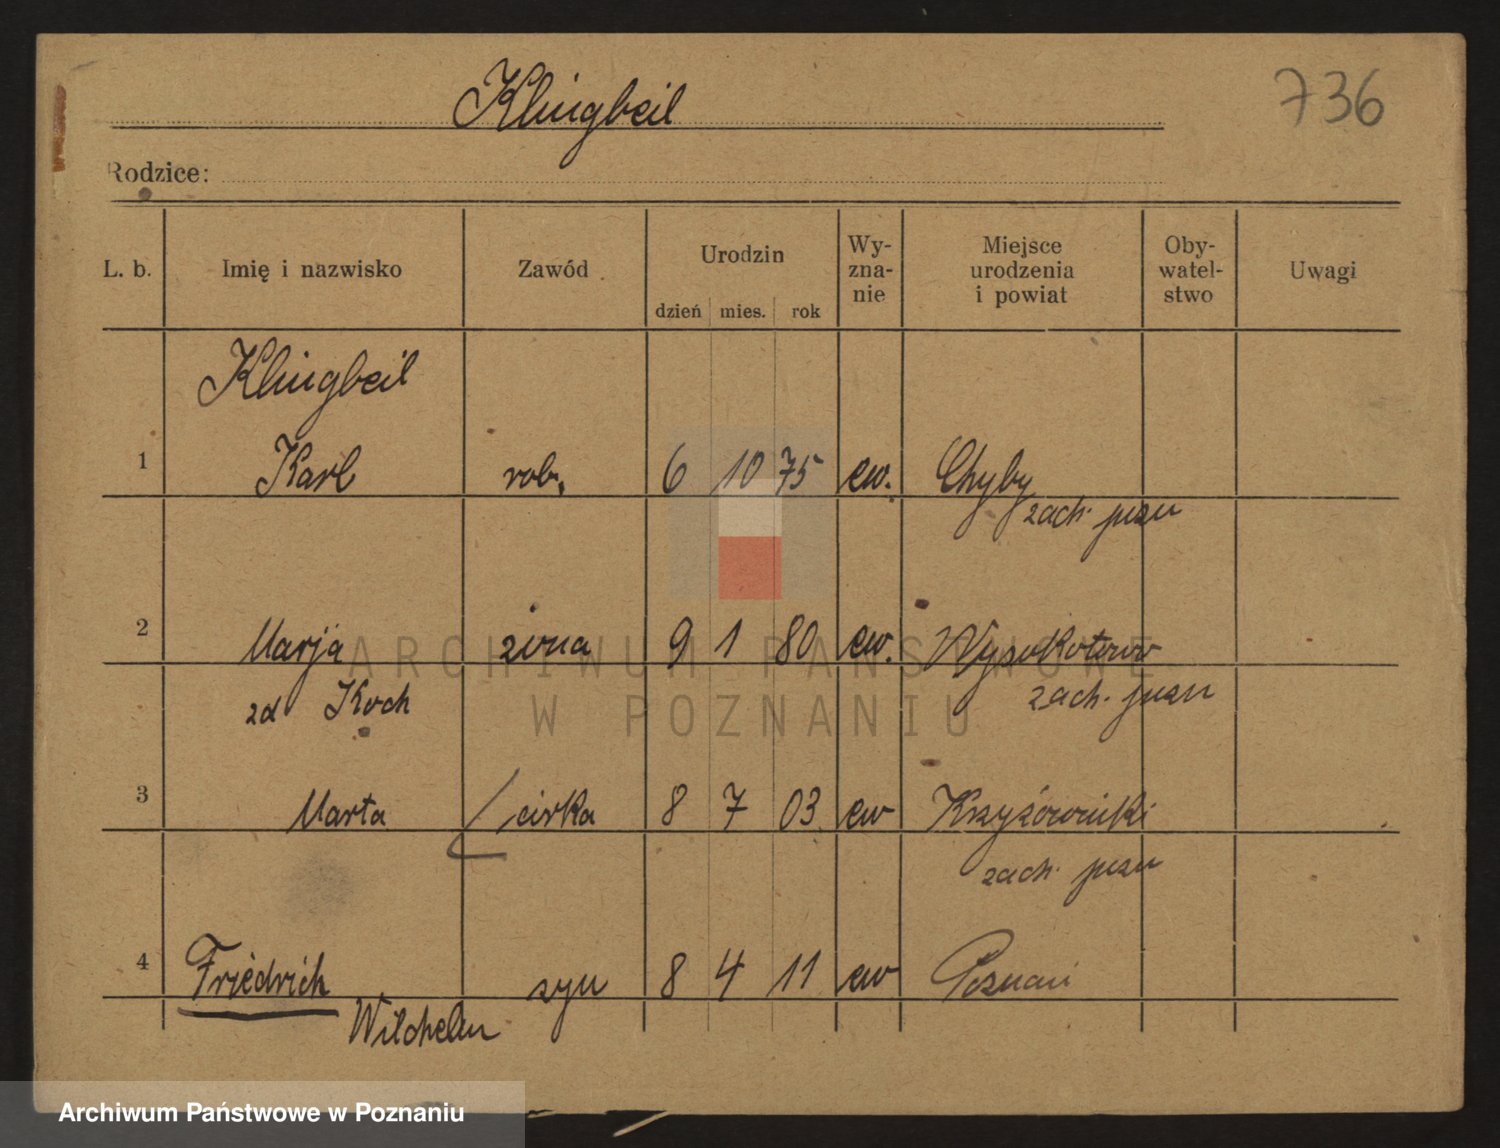 Klingbeil
736
Rodzice:
L. b. Imię i nazwisko Zawód Urodzin dzień mies. rok Wy-zna-nie Miejsce urodzenia i powiat Oby-watel-stwo Uwagi
Klingbeil
1 Karl rob. 6 10 75 ew. Chyby
zach. pozn
2 Marja żona 9 1 80 ew. Wysokotowo
zd Koch zach. pozn
3 Marta córka 8 7 03 ew Krzyżowniki
zach. pozn
4 Friedrich syn 8 4 11 ew Poznań
Wilchelm
ARCHIWUM PAŃSTWOWE
W POZNANIU
Archiwum Państwowe w Poznaniu